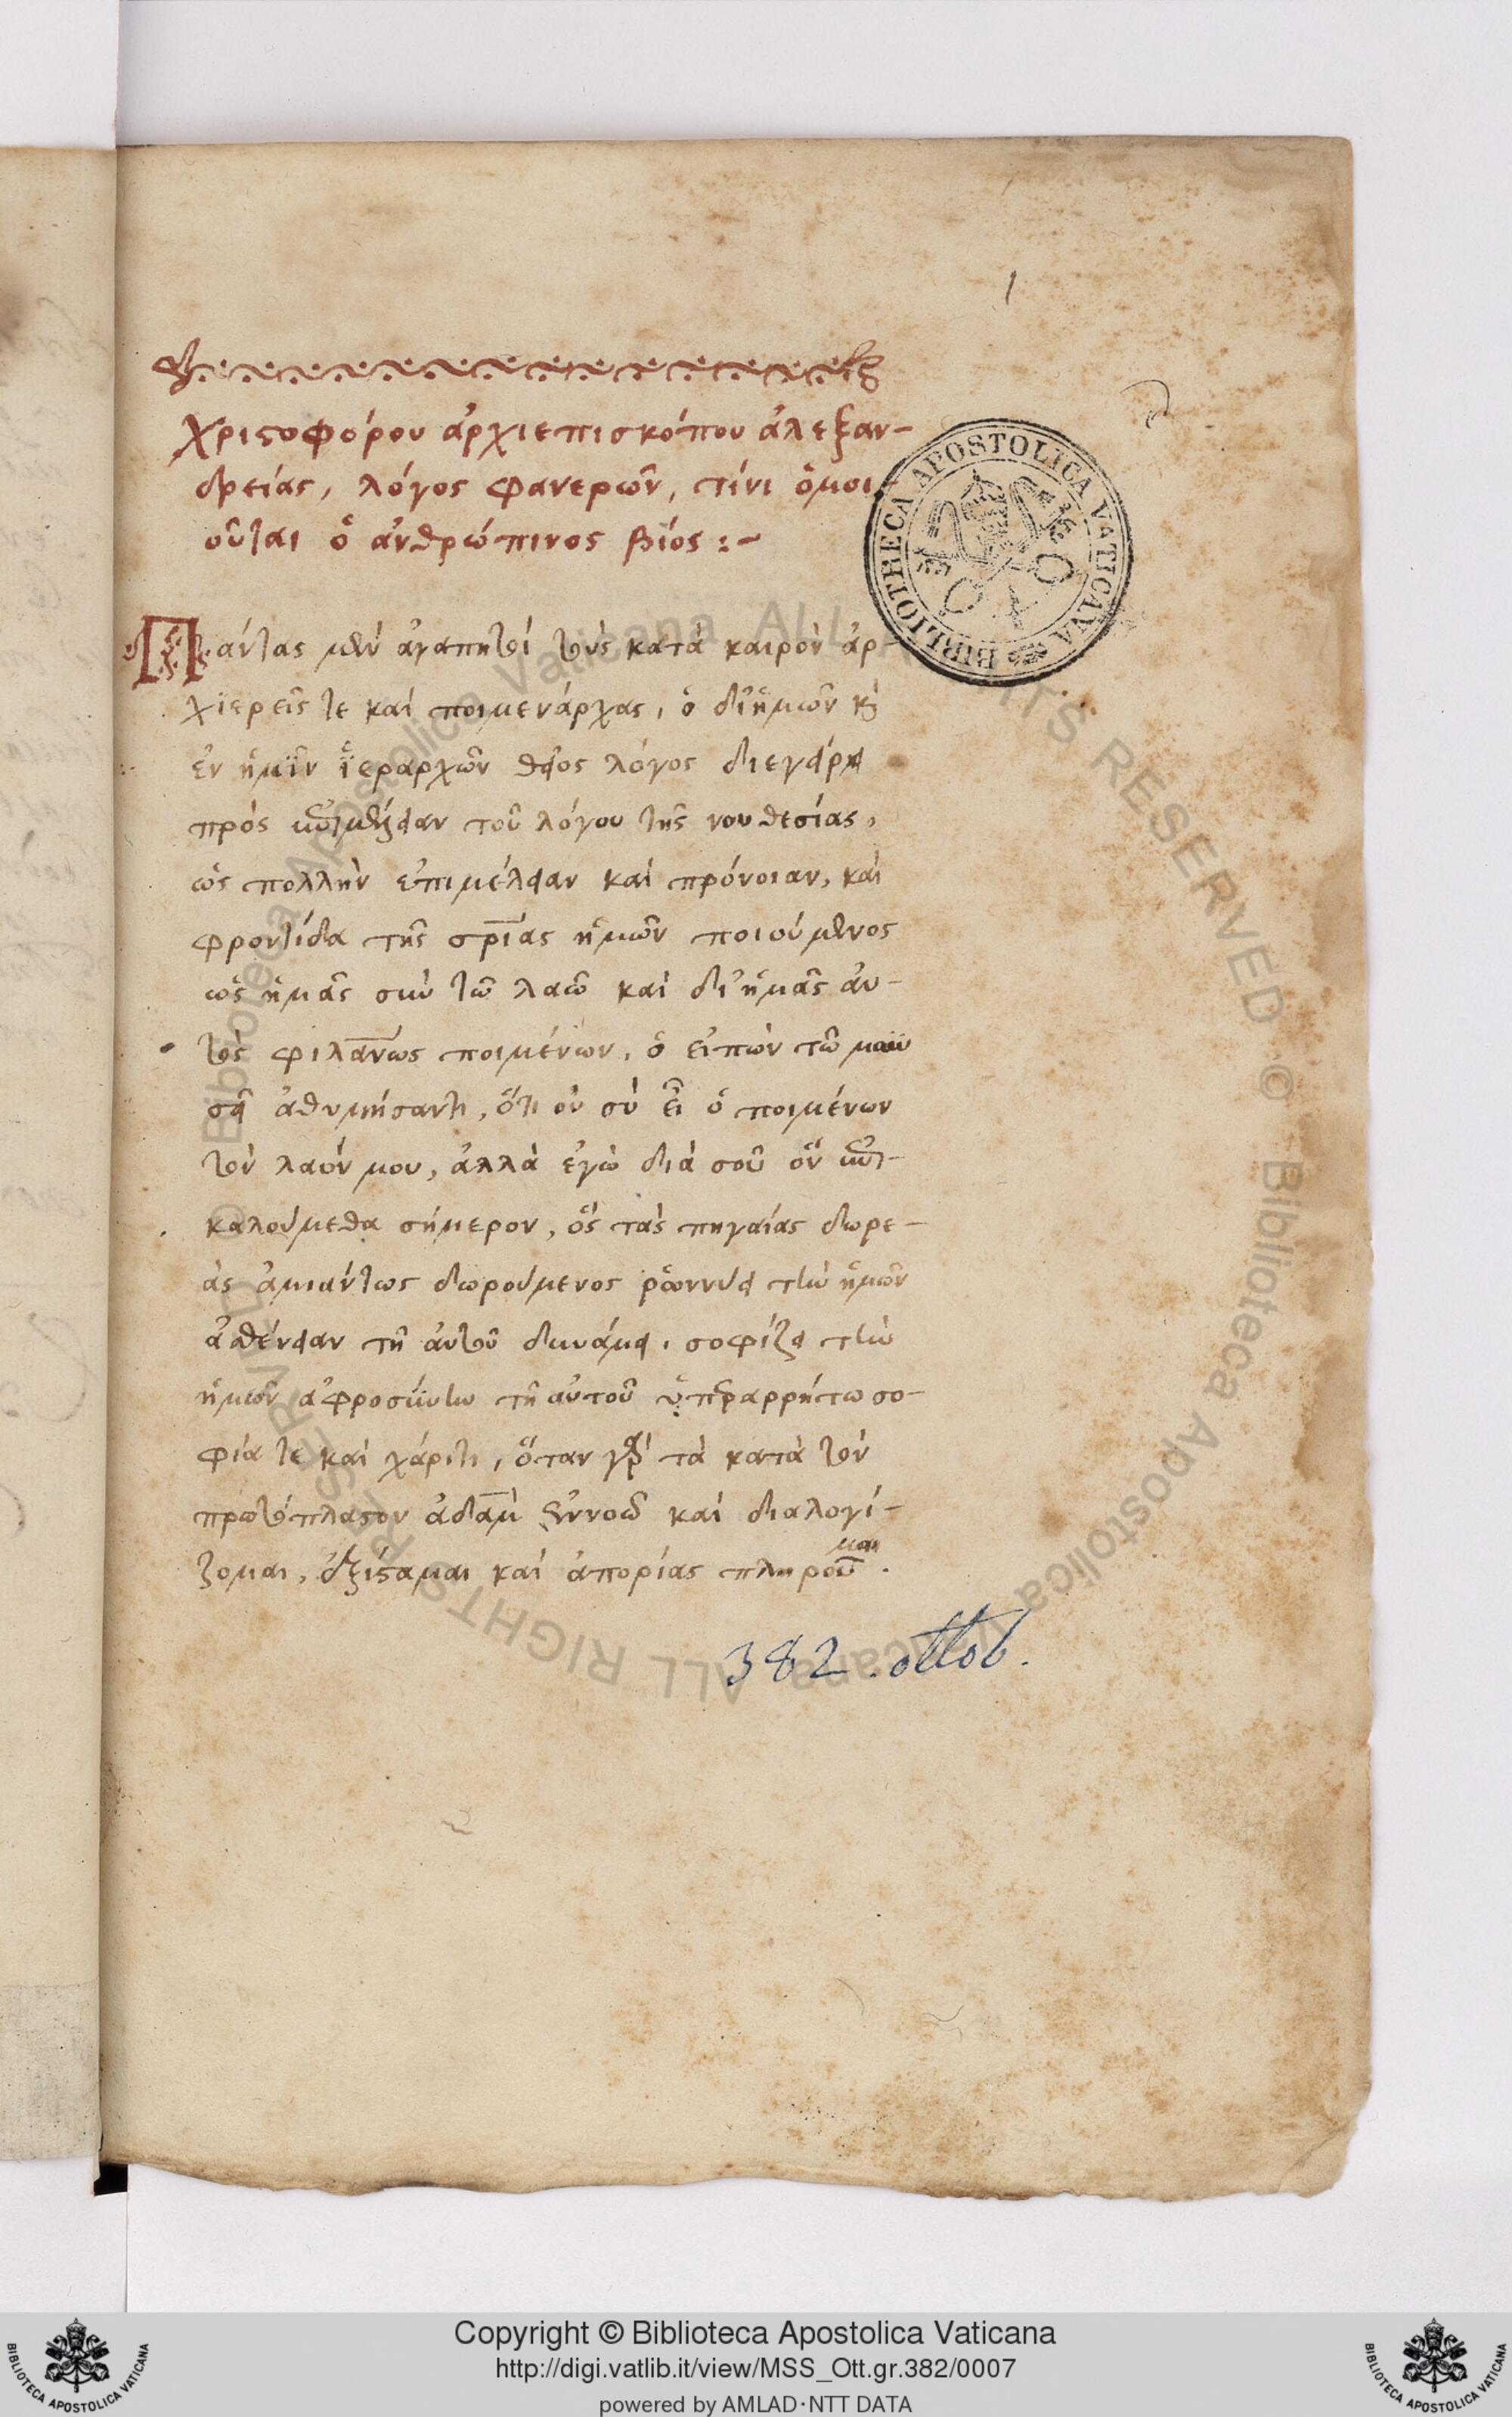 1
χριστοφόρου ἀρχιεπισκόπου ἀλεξαν-
δρείας, λόγος φανερῶν, τίνι ὁμοι-
οῦται ὁ ἀνθρώπινος βίος :-
Πάντας μὲν ἀγαπητοί τοὺς κατὰ καιρὸν ἀρ-
χϊερεῖς τε καὶ ποιμενάρχας, ὁ δι' ἡμῶν κ(αὶ)
ἐν ἡμῖν ἱεραρχῶν θεῖος λόγος διεγείρει
πρὸς τοῦ λόγου τῆς νουθεσίας,
ὡς πολλὴν ἐπιμέλειαν καὶ πρόνοιαν, καὶ
φροντίδα τῆς σρίας ἡμῶν ποιούμενος
ὡς ἡμᾶς σὺν τῶ λαῶ καὶ δι' ἡμᾶς αὐ-
τὸς φιλανως ποιμένων, ὁ εἰπὼν τῶ μωϋ
σεῖ ἀθυμήσαντι, ὅτι οὐ σὺ εἶ ὁ ποιμένων
τὸν λαόν μου, ἀλλὰ ἐγὼ διὰ σοῦ ὃν
καλούμεθα σήμερον, ὃς τὰς πηγαίας δωρε-
ὰς ἀμιάντως δωρούμενος ῥώννυει τὴν ἡμῶν
ἀσθένειαν τῆ αὐτοῦ δυνάμει, σοφίζει τὴν
ἡμῶν ἀφροσύνην τῆ αὐτοῦ ὑπεραρρήτω σο-
φία τε καὶ χάριτι, ὅταν γὰρ τὰ κατὰ τὸν
πρωτόπλαστον ἀδὰμ ἐννοῶ καὶ διαλογί-
ζομαι, ἐξίσταμαι καὶ ἀπορίας πληροῦμαι.
382. ottob.
BIBLIOTHECA APOSTOLICA VATICANA
© Biblioteca Apostolica Vaticana ALL RIGHTS RESERVED © Biblioteca Apostolica Vaticana ALL RIGHTS RESERVED
Copyright © Biblioteca Apostolica Vaticana
http://digi.vatlib.it/view/MSS_Ott.gr.382/0007
powered by AMLAD·NTT DATA
BIBLIOTECA APOSTOLICA VATICANA
BIBLIOTECA APOSTOLICA VATICANA